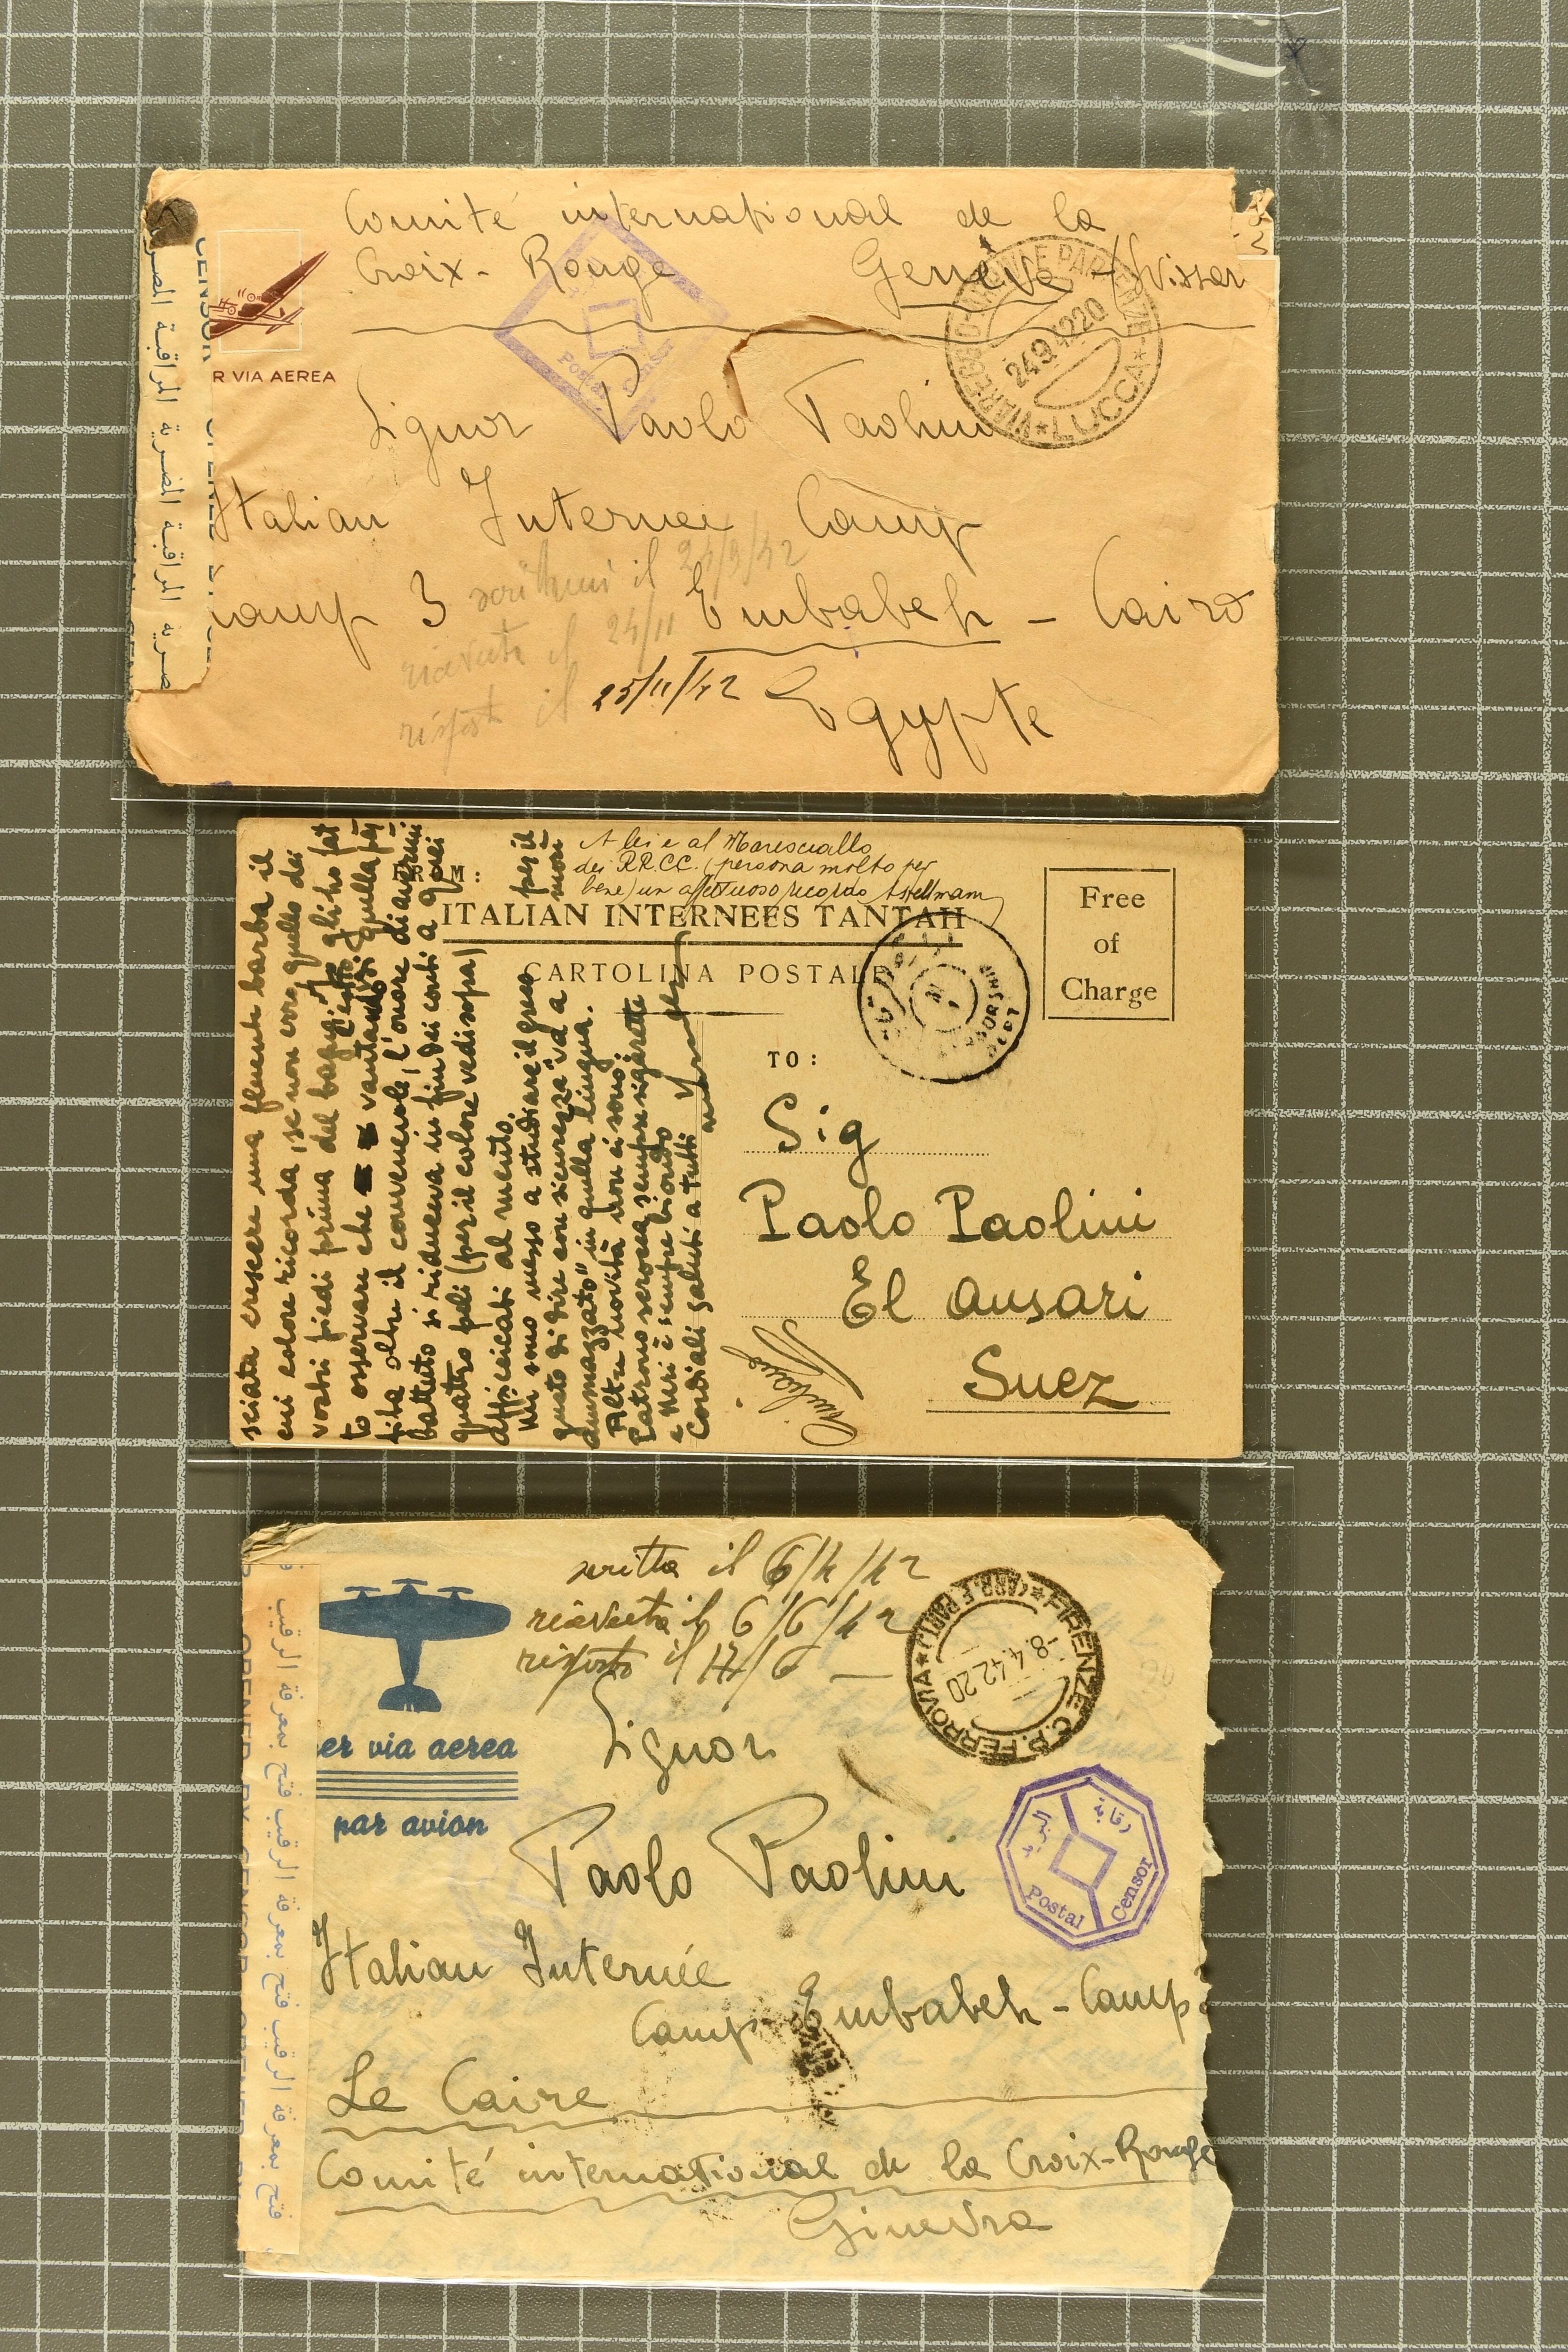 Comité international de la
Croix-Rouge Genève (Svissa
R VIA AEREA
Postal Censor
VIAREGGIO LUCCA
24 9 42 20
Signor Paolo Paolini
Italian Internee Camp
Camp 3 Embabeh - Cairo
Egypte
scritta il 24/9/42
ricevuta il 24/11
risposto il 25/11/42
A lei e al Maresciallo
dei RR.CC. (persona molto per
bene) un affettuoso ricordo
FROM:
ITALIAN INTERNEES TANTAH
CARTOLINA POSTALE
Free
of
Charge
TO:
Sig
Paolo Paolini
El Ansari
Suez
sciata crescere una fluente barba il
cui colore ricorda, se non erro, quello dei
vostri piedi prima del bagno. gli ho fat
to osservare che vantando di quella
oltre il convenevole, l'onore di
battuto si riduceva in fin dei conti a quei
quattro peli (per il colore vedi sopra)
appiccicati al mento.
Mi sono messo a studiare il greco per il
gusto di dire con sicurezza "va a
ammazzato" in quella lingua.
Altre novità non ci sono.
Patrono scrocca sempre sigarette
e Neri è sempre biondo
Cordiali saluti a tutti
scritta il 6/4/42
ricevuta il 6/6/42
risposto il 17/6 —
er via aerea
par avion
FIRENZE C.P. FERROVIA
-8.4.42.20
رقابة البريد
Postal Censor
Signor
Paolo Paolini
Italian Internée
Camp Embabeh - Camp 3
Le Caire
Comité international de la Croix-Rouge
Ginevra
فتح بمعرفة الرقيب فتح بمعرفة الرقيب فتح بمعرفة الرقيب فتح بمعرفة الرقيب
OPENED BY CENSOR OPENED BY